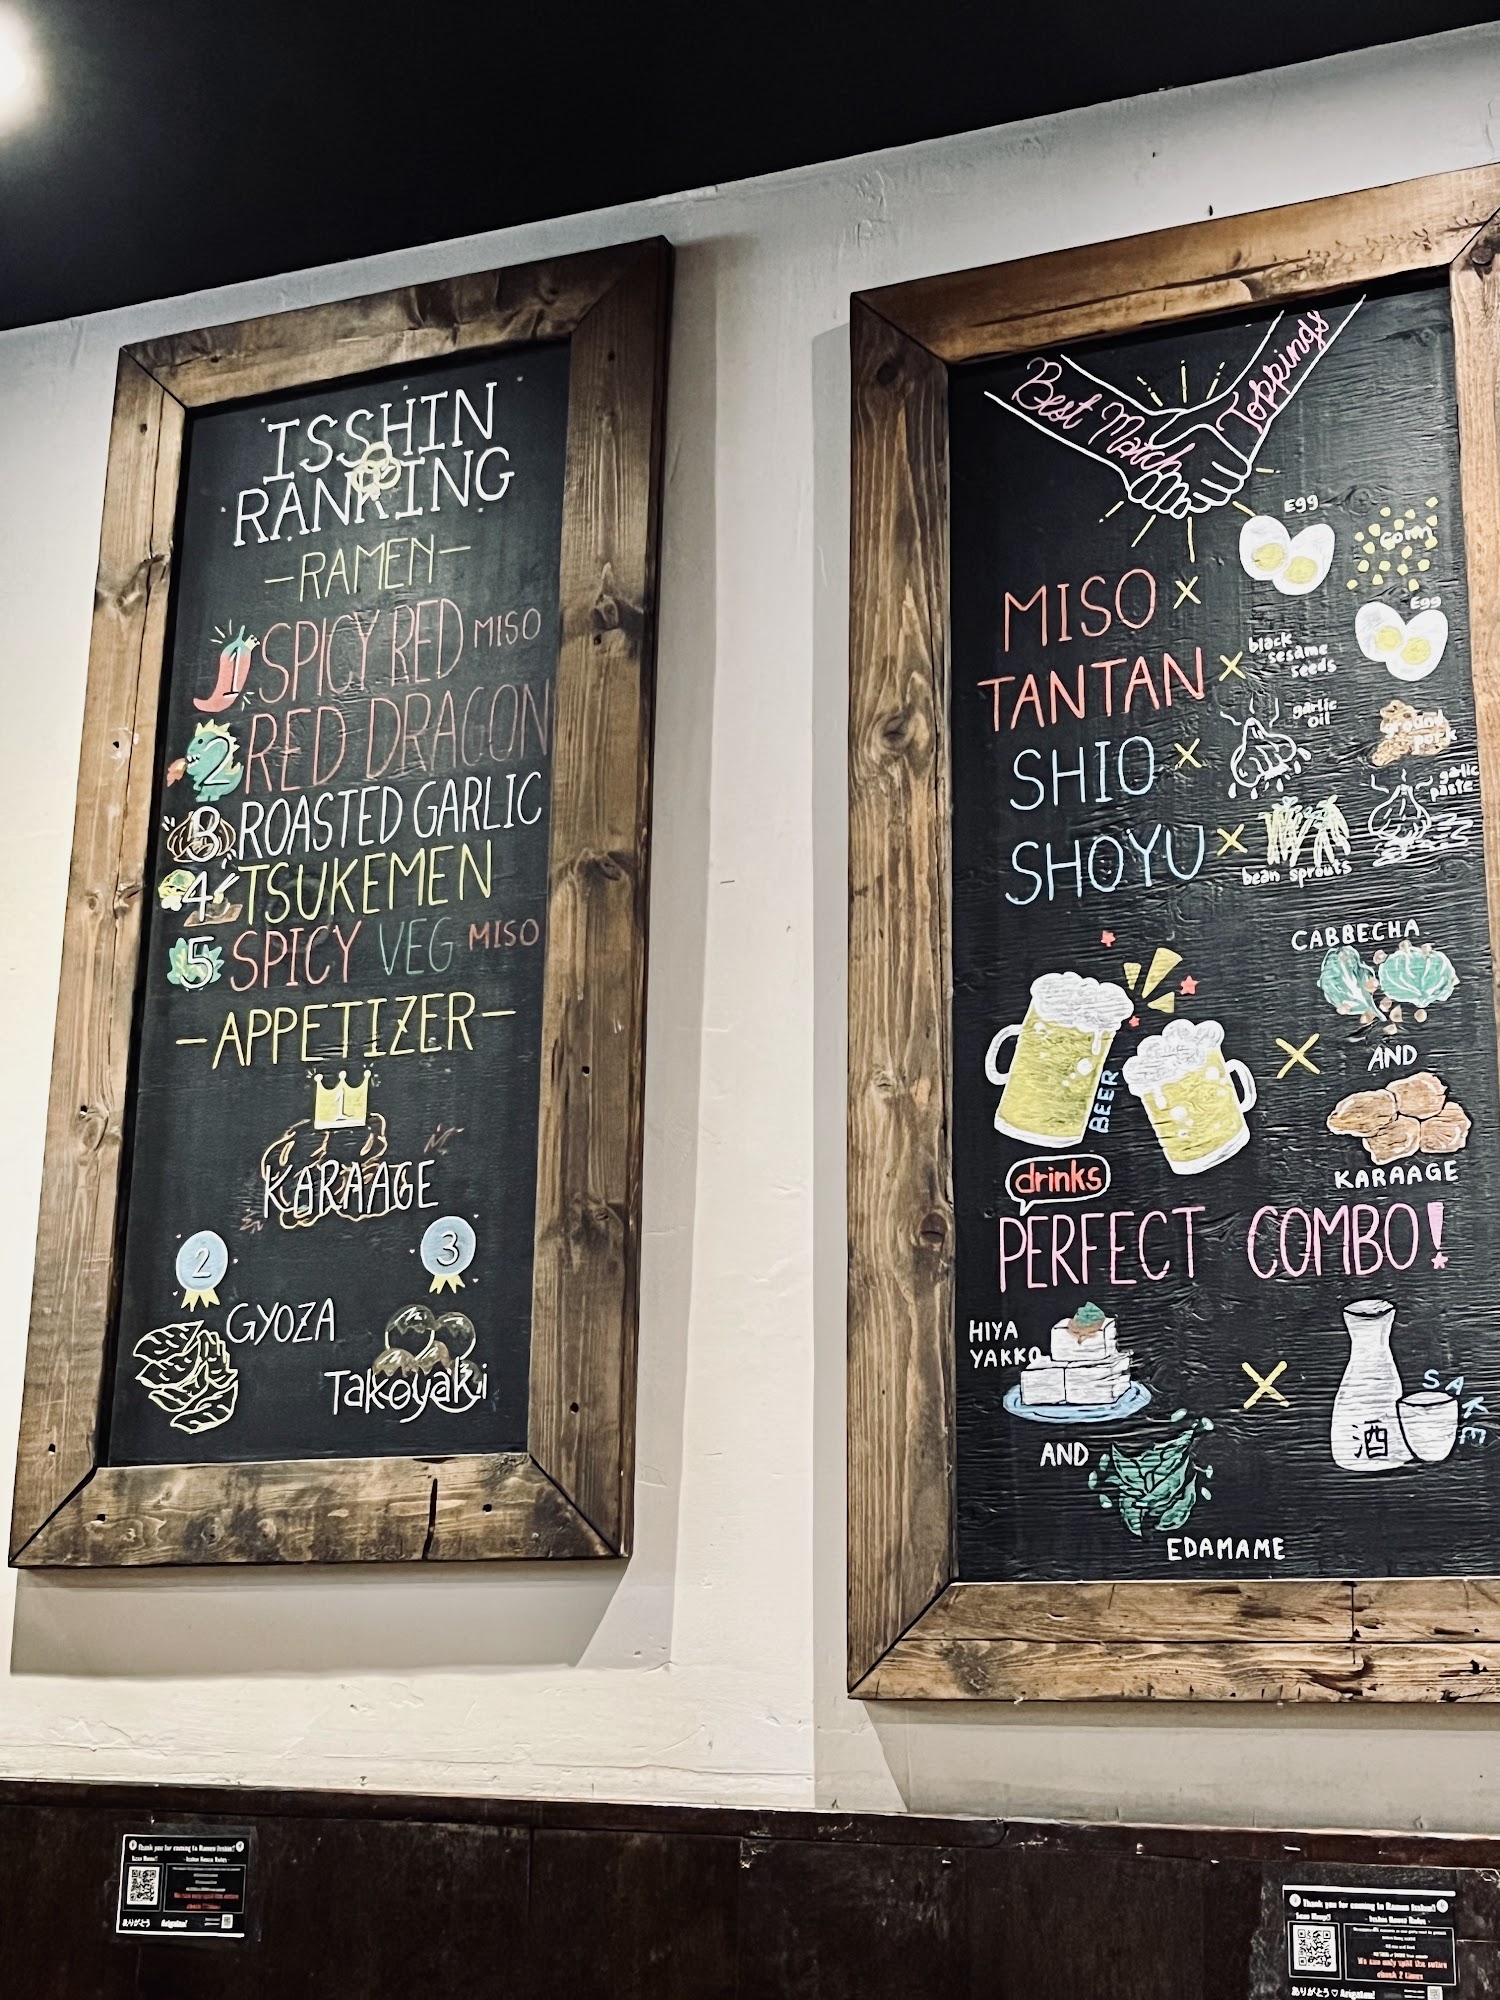 ISSHIN
RANKING
-RAMEN-
1 SPICY RED MISO
2 RED DRAGON
3 ROASTED GARLIC
4 TSUKEMEN
5 SPICY VEG MISO
-APPETIZER-
1
KARAAGE
2
GYOZA
3
Takoyaki
Best Match Toppings
MISO x
Egg
corn
TANTAN x
black
sesame
seeds
Egg
SHIO x
garlic
oil
ground
pork
SHOYU x
bean sprouts
garlic
paste
BEER
x
CABBECHA
AND
KARAAGE
drinks
PERFECT COMBO!
HIYA
YAKKO
AND
EDAMAME
x
酒
SAKE
Thank you for coming to Ramen Isshin!!
Scan Menu!!
- Isshin House Rules -
We can only split the entire
check 2 times
ありがとう Arigatou!
Thank you for coming to Ramen Isshin!!
Scan Menu!!
- Isshin House Rules -
We can only split the entire
check 2 times
ありがとう♡ Arigatou!